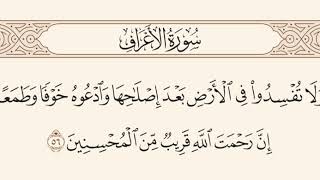 سُورَةُ الأَعْرَافِ
وَلَا تُفْسِدُوا۟ فِى ٱلْأَرْضِ بَعْدَ إِصْلَـٰحِهَا وَٱدْعُوهُ خَوْفًا وَطَمَعًا
إِنَّ رَحْمَتَ ٱللَّهِ قَرِيبٌ مِّنَ ٱلْمُحْسِنِينَ ٥٦